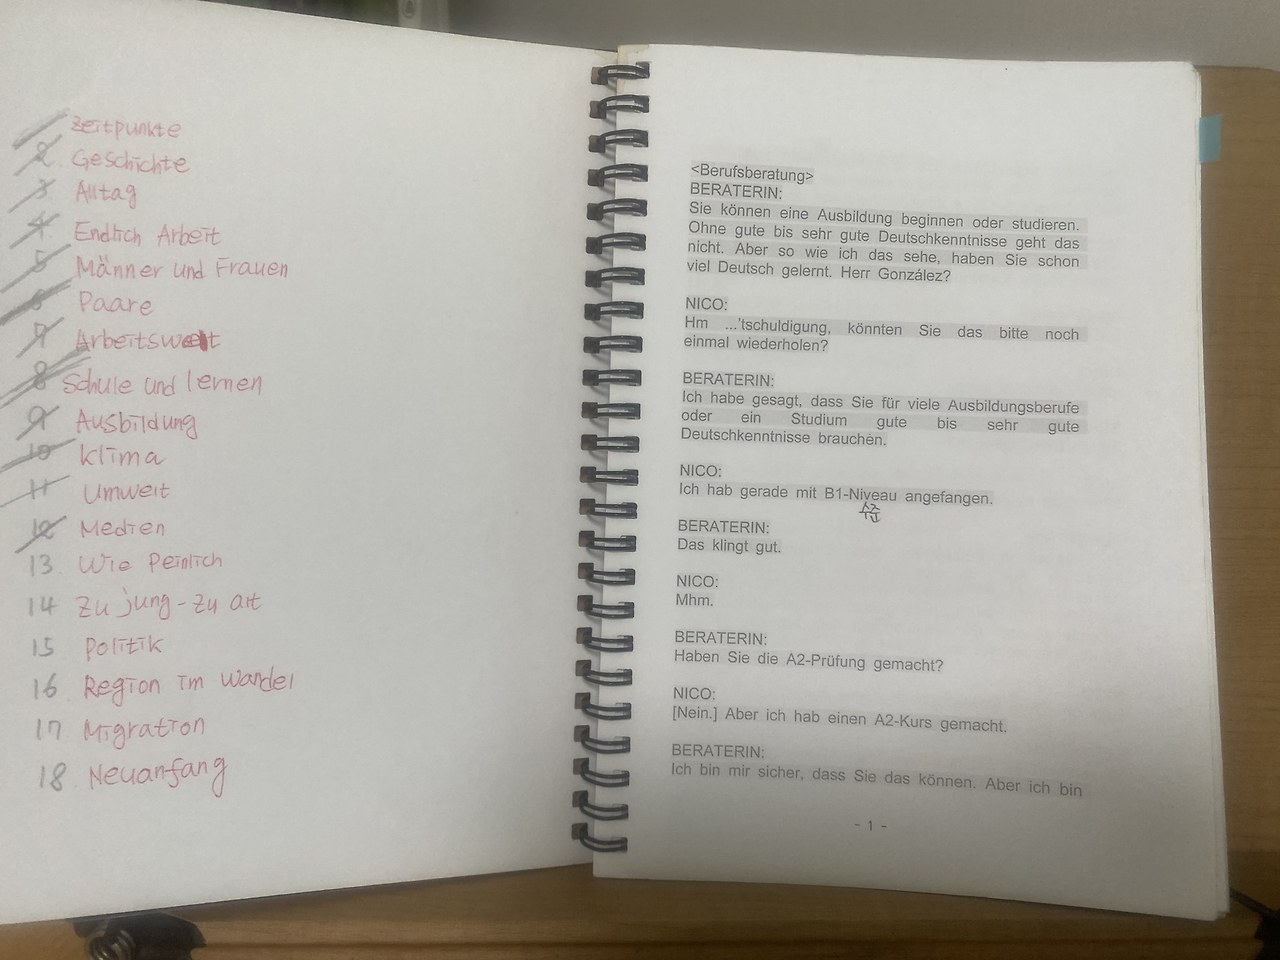 Zeitpunkte
2. Geschichte
3 Alltag
4. Endlich Arbeit
5 Männer und Frauen
6 Paare
7 Arbeitswelt
8 Schule und lernen
9 Ausbildung
10 Klima
11 Umwelt
12 Medien
13 Wie Peinlich
14 Zu jung - zu alt
15 Politik
16 Region im Wandel
17 Migration
18. Neuanfang
<Berufsberatung>
BERATERIN:
Sie können eine Ausbildung beginnen oder studieren.
Ohne gute bis sehr gute Deutschkenntnisse geht das
nicht. Aber so wie ich das sehe, haben Sie schon
viel Deutsch gelernt. Herr González?
NICO:
Hm ...'tschuldigung, könnten Sie das bitte noch
einmal wiederholen?
BERATERIN:
Ich habe gesagt, dass Sie für viele Ausbildungsberufe
oder ein Studium gute bis sehr gute
Deutschkenntnisse brauchen.
NICO:
Ich hab gerade mit B1-Niveau angefangen.
수준
BERATERIN:
Das klingt gut.
NICO:
Mhm.
BERATERIN:
Haben Sie die A2-Prüfung gemacht?
NICO:
[Nein.] Aber ich hab einen A2-Kurs gemacht.
BERATERIN:
Ich bin mir sicher, dass Sie das können. Aber ich bin
- 1 -